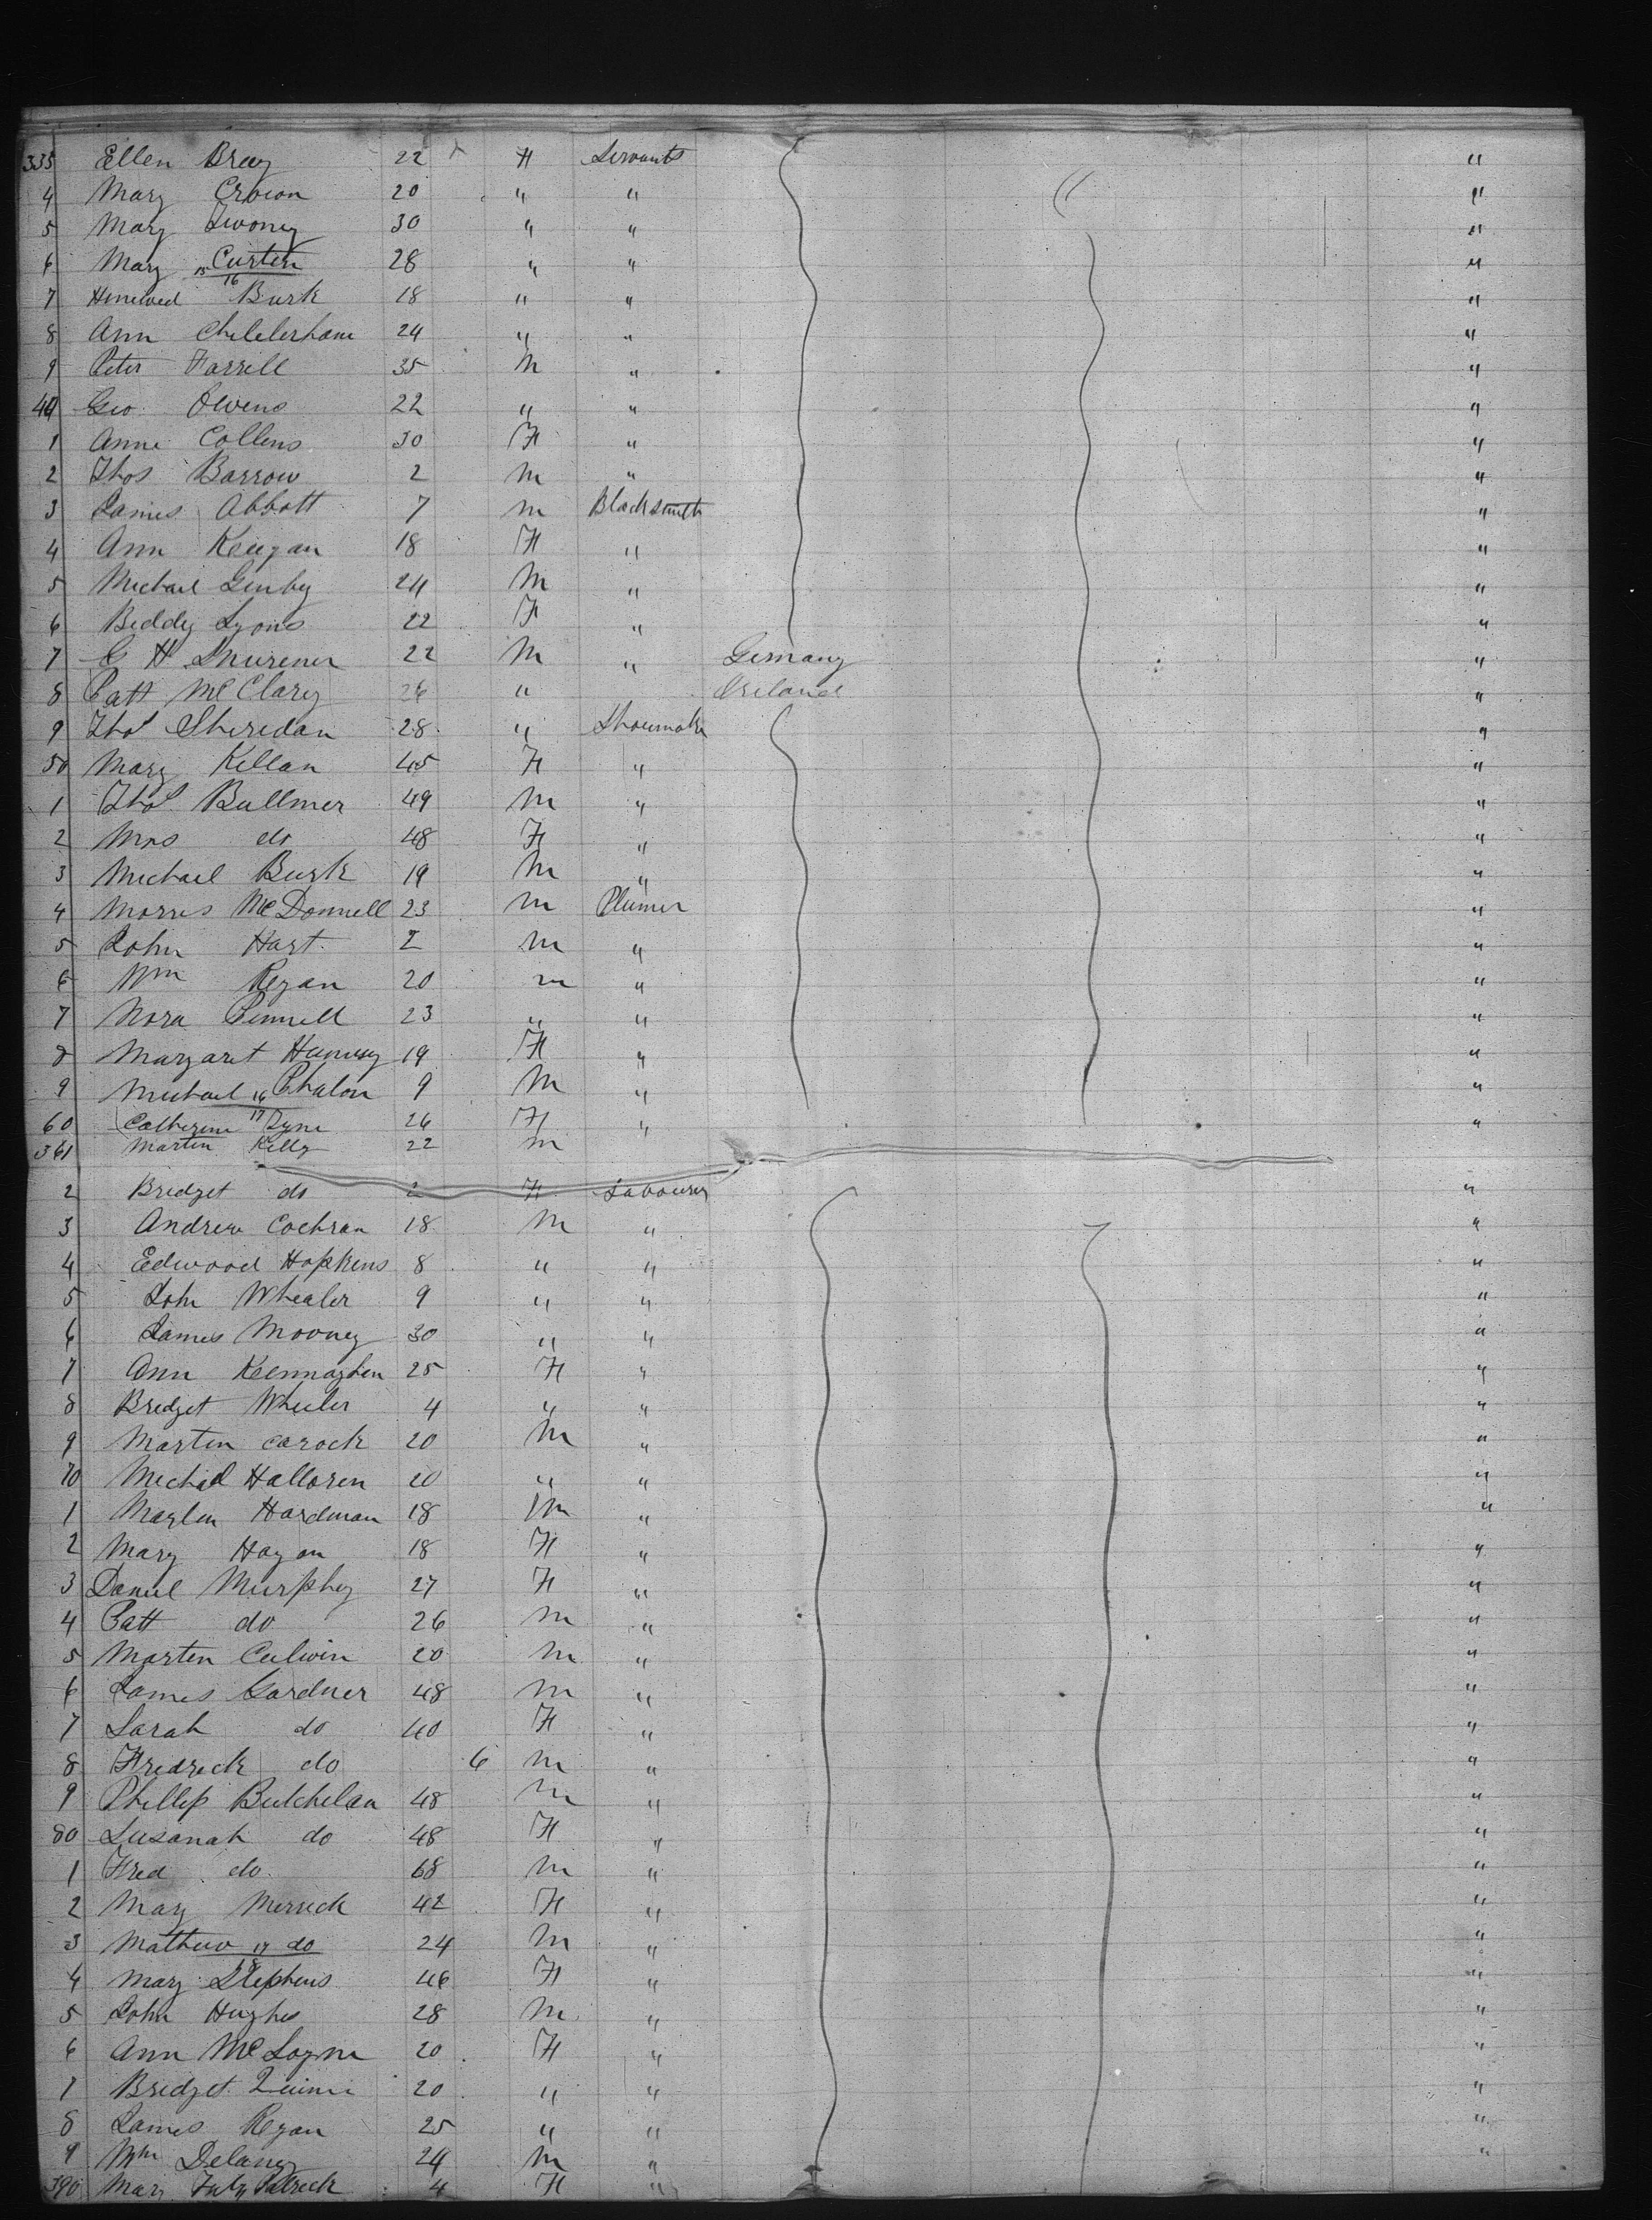 335 Ellen Bray 22 F Servants "
4 Mary Crowon 20 " " "
5 Mary Twoney 30 " " "
6 Mary 15 Curten 28 " " "
7 16 Burk 18 " " "
8 Ann 24 " " "
9 Peter Farrell 35 M " "
44 Geo Owens 22 " " "
1 Anne Collens 30 F " "
2 Thos Barrow 2 M " "
3 James Abbott 7 M Blacksmith "
4 Ann Keegan 18 F " "
5 Michael 24 M " "
6 Biddy Lyons 22 F " "
7 G H 22 M " Germany "
8 Patt McClary 26 " Ireland "
9 Thos Sheridan 28 " Shoemaker "
50 Mary Killan 45 F " "
1 Thos Bullmer 49 M " "
2 Mrs do 48 F " "
3 Michael Burk 19 M " "
4 Morris McDonnell 23 M Plumer "
5 John Hart 2 M " "
6 Wm Regan 20 M " "
7 Nora Pennell 23 " " "
8 Margaret 19 F " "
9 Michael 16 Phalon 9 M " "
60 Catherine 17 Tyne 26 F " "
361 Marten Kelly 22 M
2 Bridget do 2 F Labourer "
3 Andrew Cochran 18 M " "
4 Edwood Hopkins 8 " " "
5 John Whealer 9 " " "
6 James Mooney 30 " " "
7 Ann Keenaghen 25 F " "
8 Bridget Wheeler 4 " " "
9 Marten Carock 20 M " "
70 Michal Halloren 20 " " "
1 Hardman 18 M " "
2 Mary Hagan 18 F " "
3 Daniel Murphy 27 F " "
4 Patt do 26 M " "
5 Marten Culwin 20 M " "
6 James Gardner 48 M " "
7 Sarah do 40 F " "
8 Fredreck do 6 M " "
9 Phillip Butchelan 48 M " "
80 Susanah do 48 F " "
1 Fred do 68 M " "
2 Mary Merrick 42 F " "
3 Mathew 17 do 24 M " "
4 Mary 18 Stephens 46 F " "
5 John Hughes 28 M " "
6 Ann McLogne 20 F " "
7 Bridget Quinn 20 " " "
8 James Regan 25 " " "
9 Wm Delany 24 M " "
390 Mary Fitz Patrick 4 F "